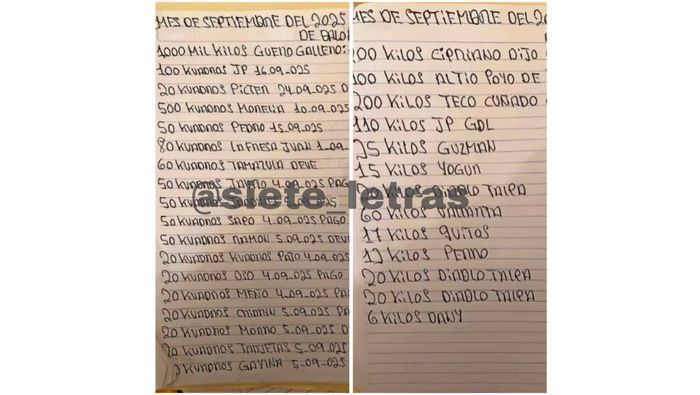 MES DE SEPTIEMBRE DEL 2025
DE BALO
1000 MIL KILOS GUERO GALLERO:
100 KUADROS JP 16.09.025
20 KUADROS PICTER 24.09.025 D
500 KUADROS MORELIA 10.09.025
50 KUADROS PEDRO 15.09.025
80 KUADROS LA FRESA JUAN 1.09
60 KUADROS TAMAZULA DEVE
50 KUADROS 4.09.025 PAG
50 KUADROS 5.09.025
50 KUADROS SAPO 4.09.025 PAGO
50 KUADROS RAMON 5.09.025 DEVE
20 KUADROS KUADROS PATO 4.09.025
20 KUADROS OSO 4.09.025 PAGO
20 KUADROS MEÑO 4.09.025 PA
20 KUADROS 5.09.025 PA
20 KUADROS MORRO 5.09.025 D
20 KUADROS TARJETAS 5.09.025
KUADROS GAVINA 5.09.025
MES DE SEPTIEMBRE DEL 20
DE
200 KILOS CIPRIANO DIJO
100 KILOS ALTIO POYO DE
200 KILOS TECO CUÑADO
110 KILOS JP GDL
25 KILOS GUZMAN
15 KILOS YOGUR
20 KILOS DIABLO TALPA
60 KILOS VALLARTA
17 KILOS QUITOS
12 KILOS PERRO
20 KILOS DIABLO TALPA
20 KILOS DIABLO TALPA
6 KILOS DANY
@siete_letras